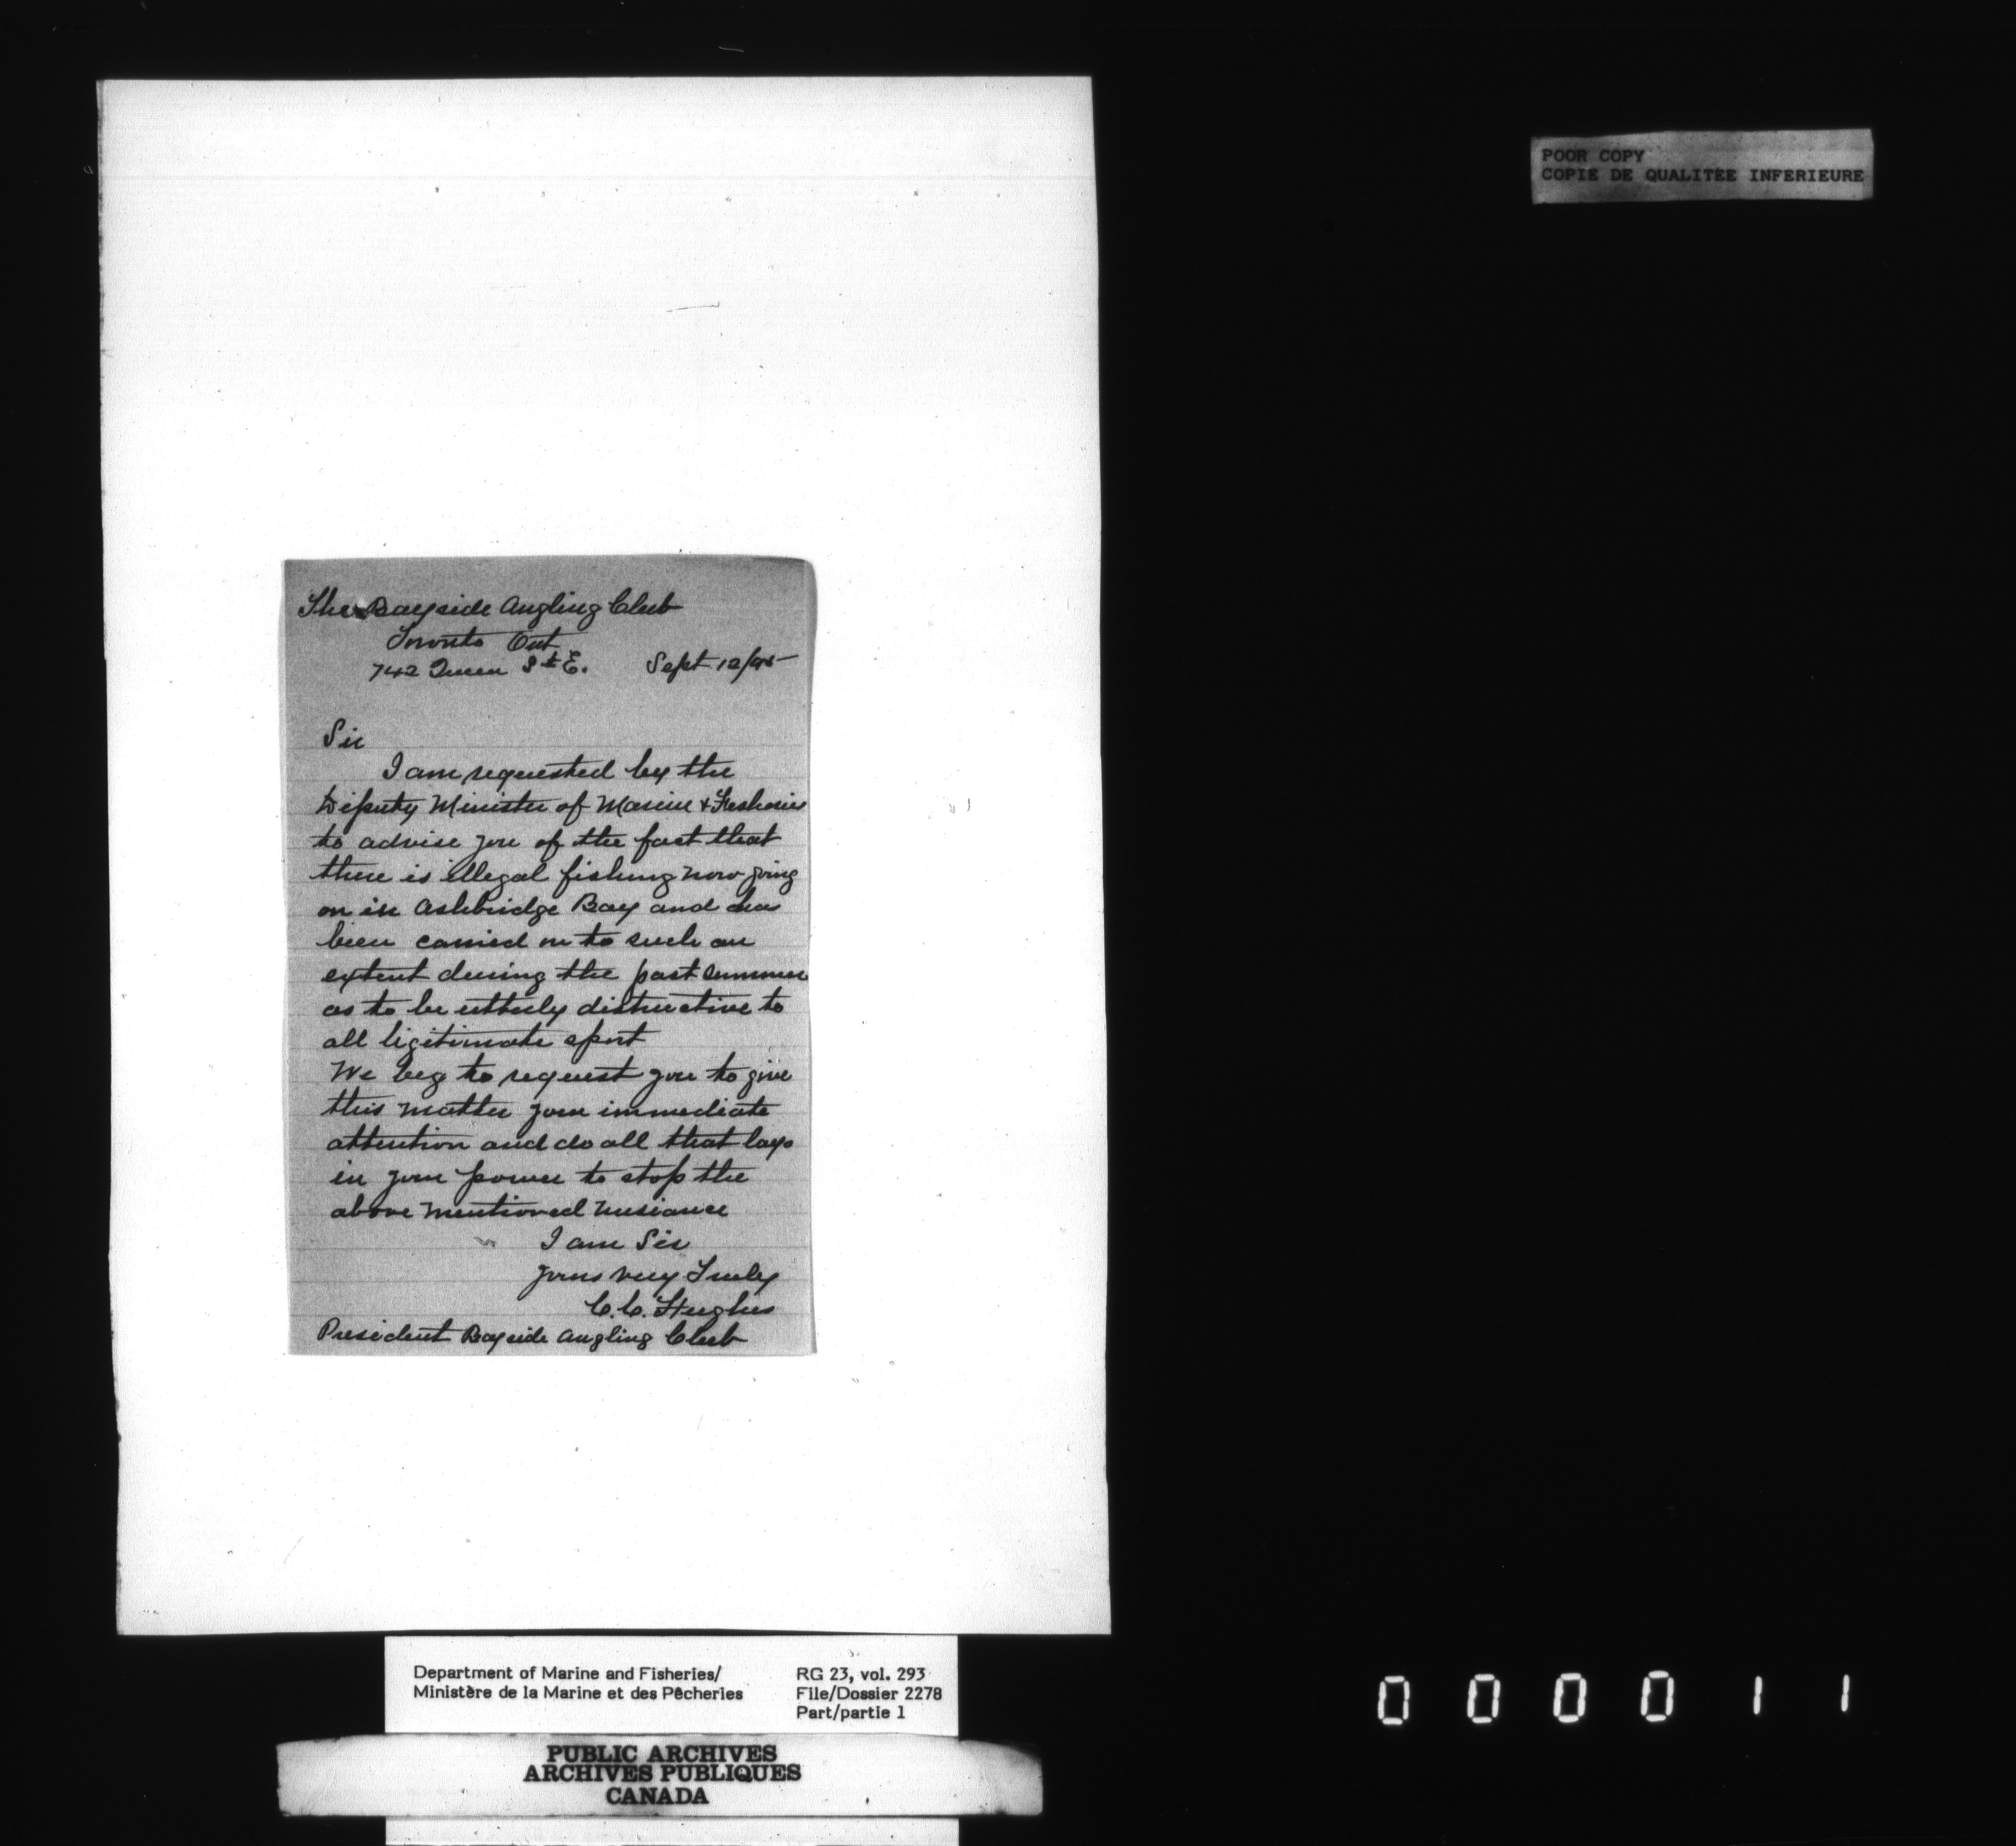 POOR COPY
COPIE DE QUALITEE INFERIEURE
The Bayside Angling Club
Toronto Ont
742 Queen St E. Sept 12/95
Sir
I am requested by the
Deputy Minister of Marine & Fisheries
to advise you of the fact that
there is illegal fishing now going
on in Ashbridge Bay and has
been carried on to such an
extent during the past summer
as to be utterly distructive to
all ligitimate sport
We beg to request you to give
this matter your immediate
attention and do all that lays
in your power to stop the
above mentioned nusiance
I am Sir
Yours very Truly
C.C. Hughes
President Bayside Angling Club
Department of Marine and Fisheries/
Ministère de la Marine et des Pêcheries
RG 23, vol. 293
File/Dossier 2278
Part/partie 1
PUBLIC ARCHIVES
ARCHIVES PUBLIQUES
CANADA
000011